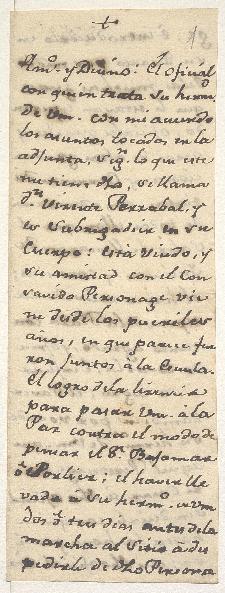 +
Am.º y Divino: El oficial
con quien trata su herm.º
de Vm. con mi acuerdo
los asuntos tocados en la
adjunta, sig.ⁿ lo que este
me tiene dho, se llama
d.ⁿ Vicente Perrabal, y
es Subrigadier en su
Cuerpo: está viudo, y
su amistad con el con
savido Personage, vie
ne desde los pueriles
años, en que parece fue
ron juntos à la Escuela.
El logro de la licencia
para pasar Vm. a la
Paz contra el modo de
pensar el S.ʳ Bajamar
ò Porlier; el haver lle
vado a su herm.º
dos ò tres dias antes de la
marcha al Sitio à des
pedirse de dho Persona